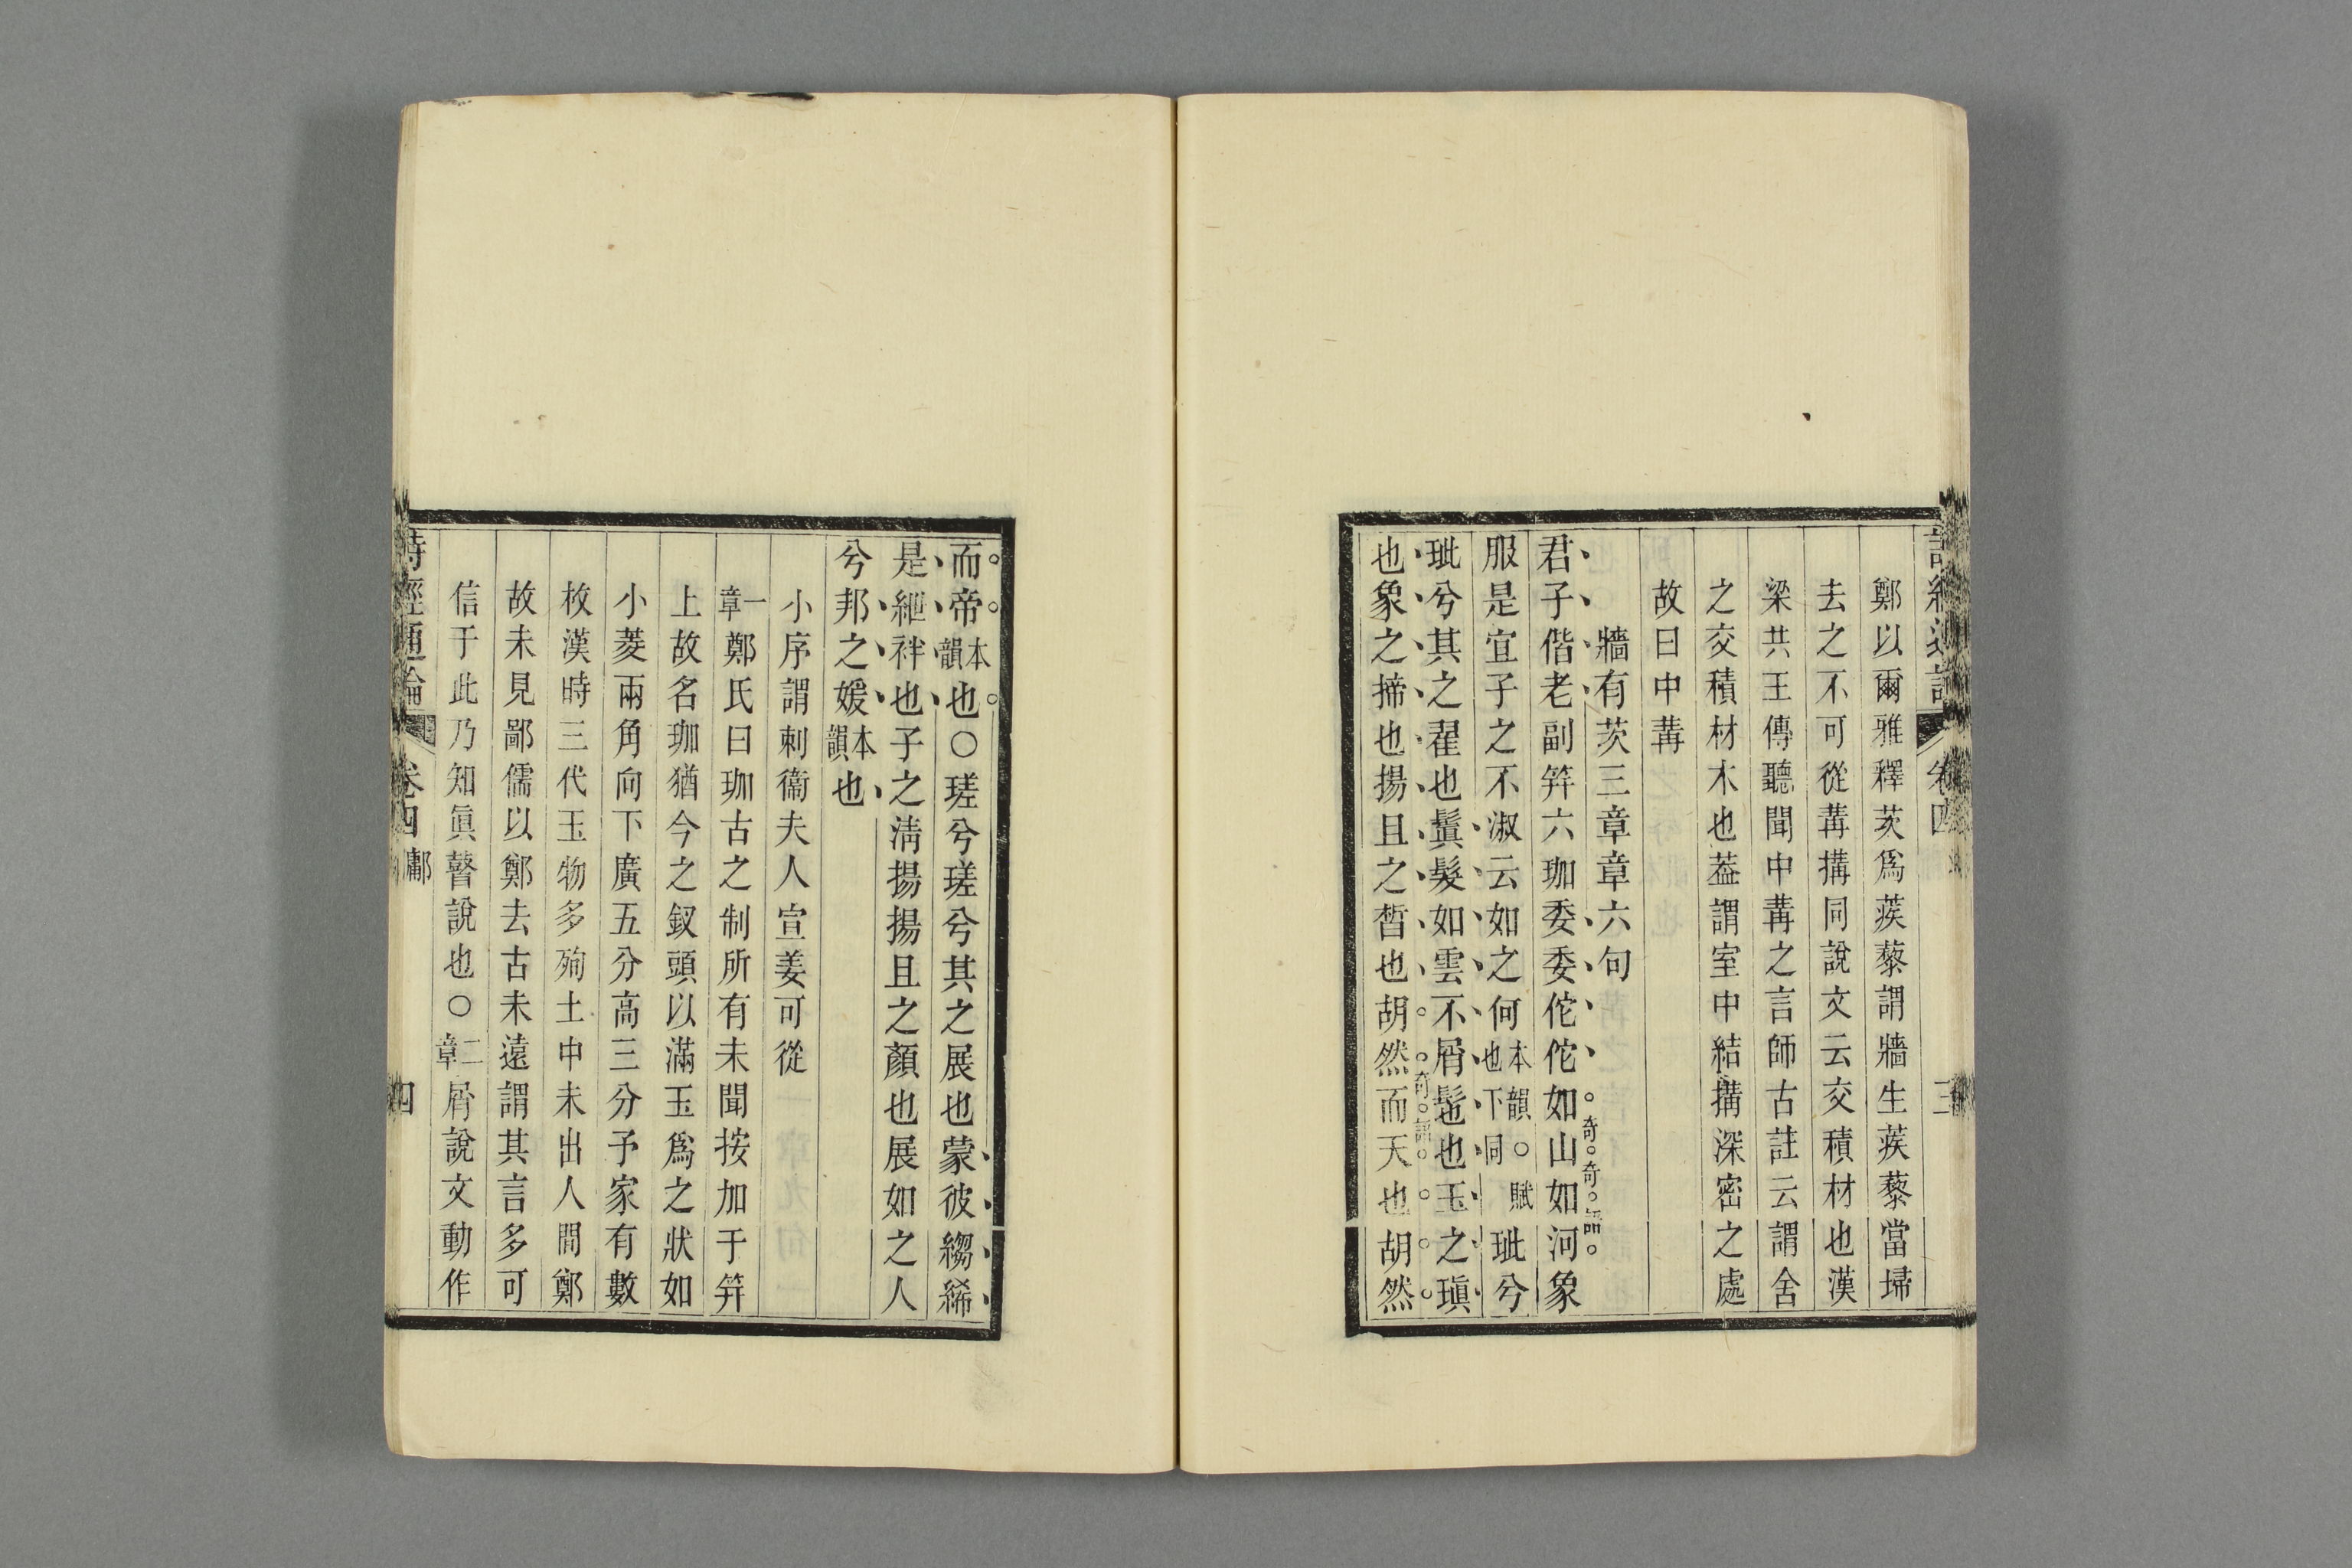 鄭以爾雅釋茨爲蒺藜謂牆生蒺藜當埽
去之不可從冓搆同說文云交積材也漢
梁共王傳聽聞中冓之言師古註云謂舍
之交積材木也葢謂室中結搆深密之處
故曰中冓
牆有茨三章章六句
君子偕老副筓六珈委委佗佗如山如河象
奇奇語
服是宜子之不淑云如之何本韻○賦也下同玼兮
玼兮其之翟也鬒髮如雲不屑髢也玉之瑱
也象之揥也揚且之皙也胡然而天也胡然
奇語
卷四
三
而帝本韻也○瑳兮瑳兮其之展也蒙彼縐絺
是紲袢也子之淸揚揚且之顏也展如之人
兮邦之媛本韻也
小序謂刺衞夫人宣姜可從
一章鄭氏曰珈古之制所有未聞按加于筓
上故名珈猶今之釵頭以滿玉爲之狀如
小菱兩角向下廣五分高三分予家有數
枚漢時三代玉物多殉土中未出人間鄭
故未見鄙儒以鄭去古未遠謂其言多可
信于此乃知眞瞽說也○二章屑說文動作
詩經通論
卷四
鄘
四